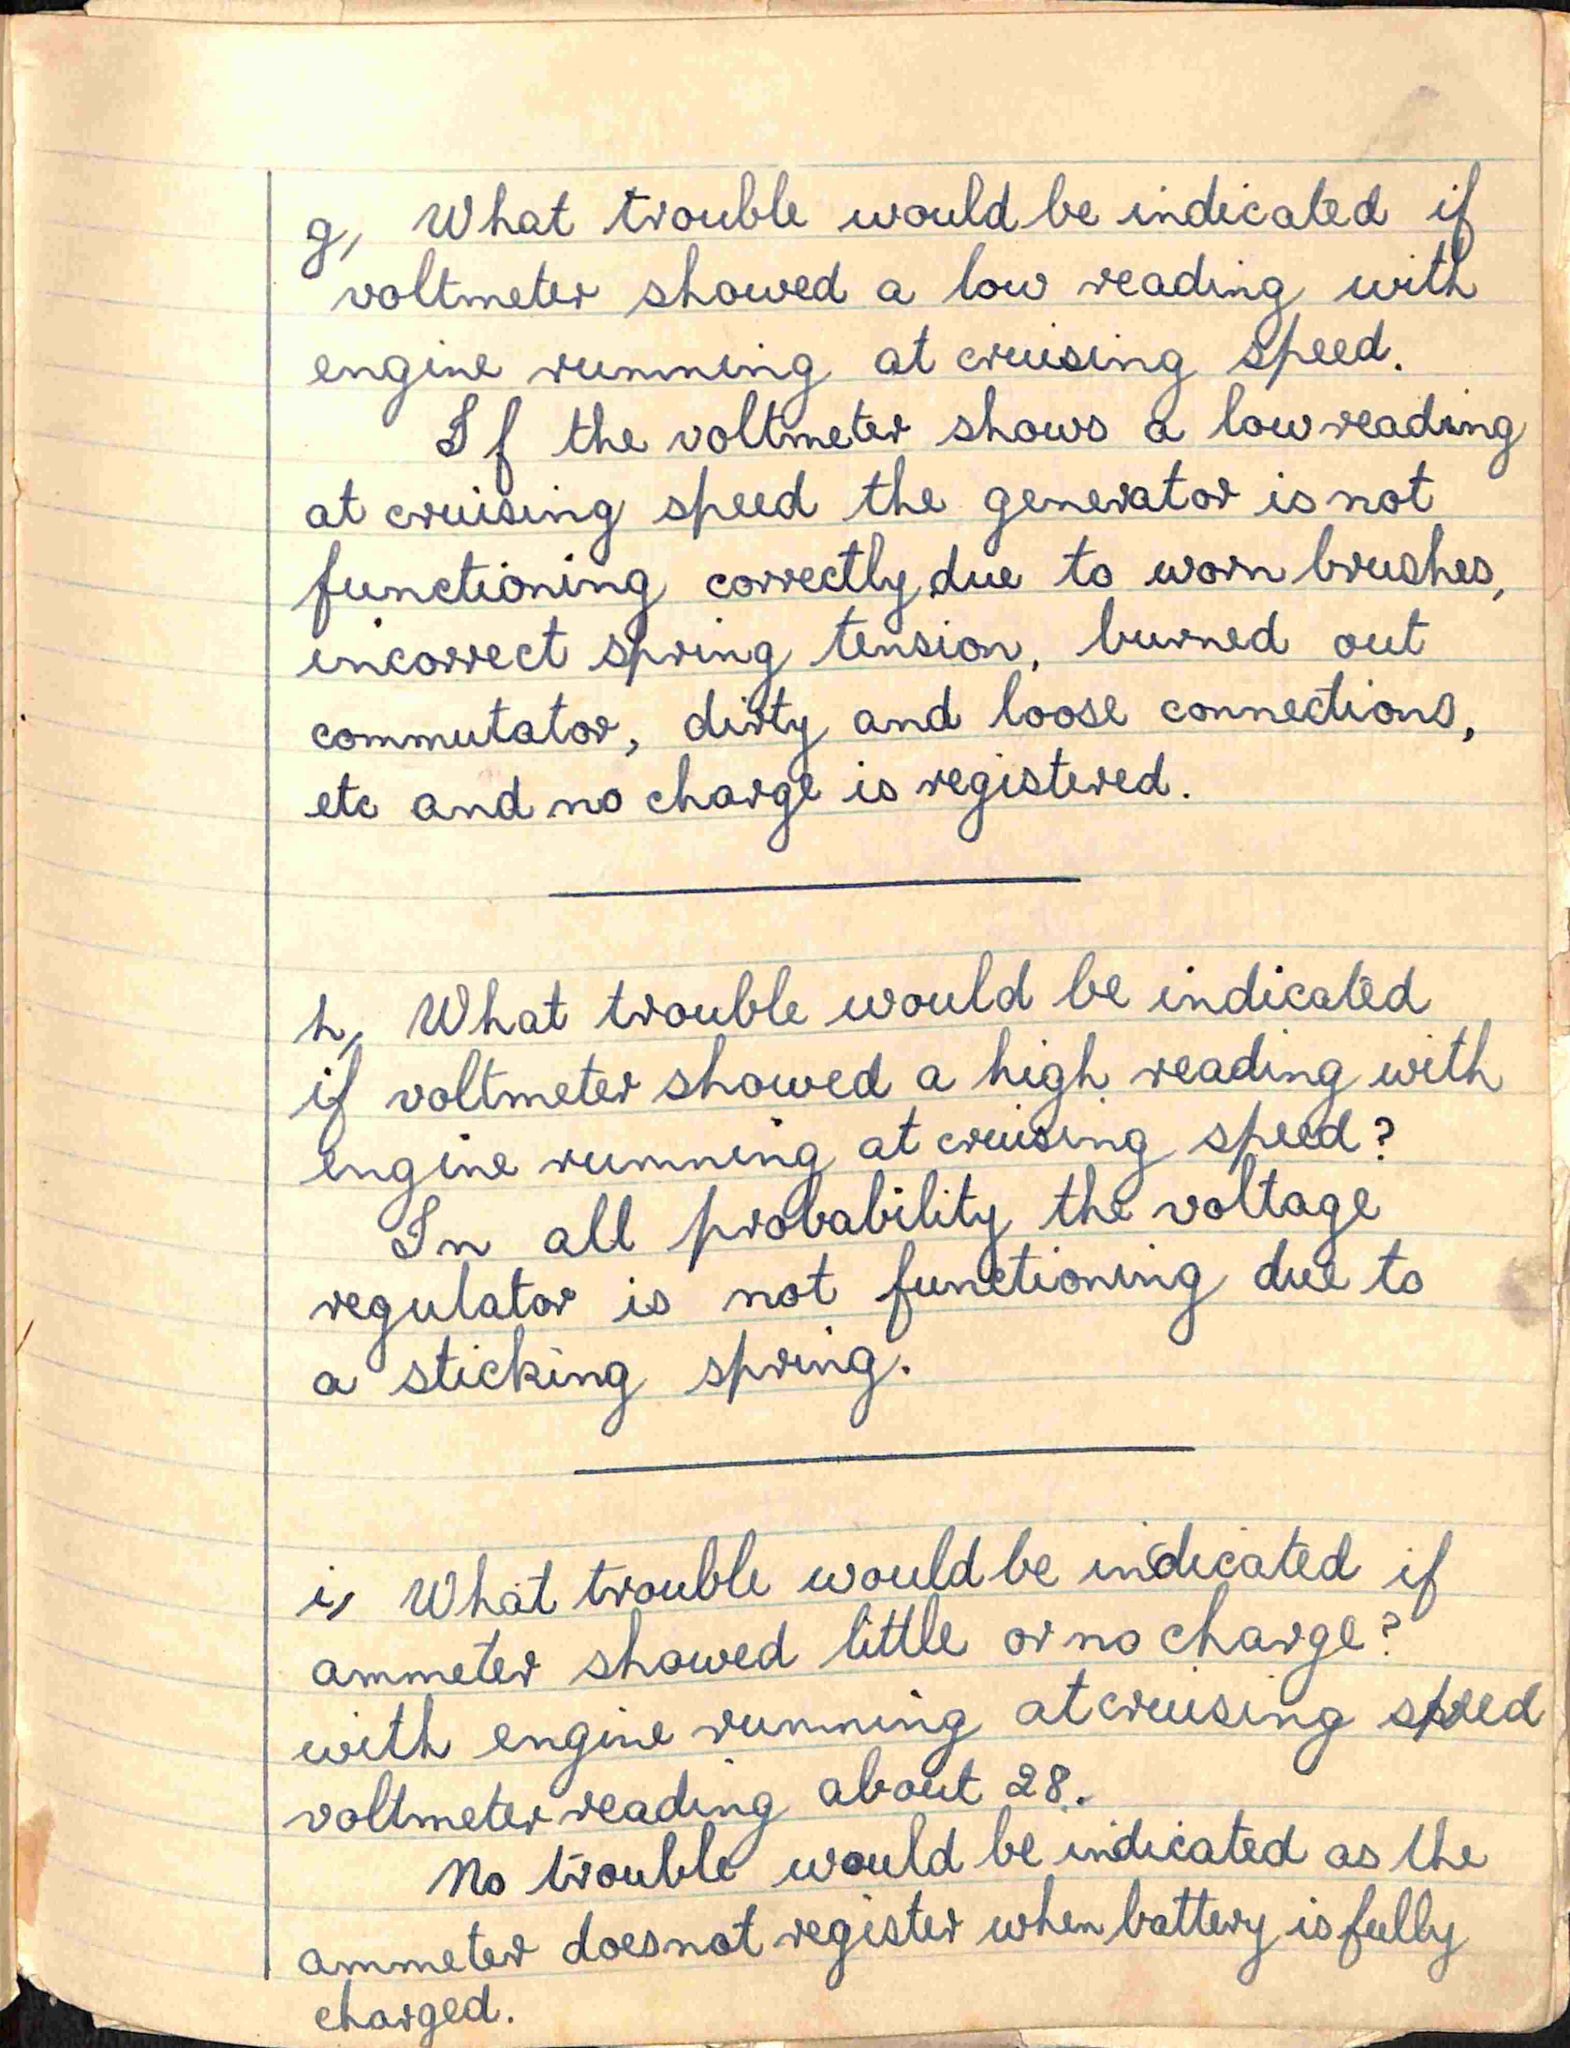 g, What trouble would be indicated if
voltmeter showed a low reading with
engine running at cruising speed.
If the voltmeter shows a low reading
at cruising speed the generator is not
functioning correctly due to worn brushes,
incorrect spring tension, burned out
commutator, dirty and loose connections,
etc and no charge is registered.
h, What trouble would be indicated
if voltmeter showed a high reading with
engine running at cruising speed?
In all probability the voltage
regulator is not functioning due to
a sticking spring.
i, What trouble would be indicated if
ammeter showed little or no charge?
with engine running at cruising speed
voltmeter reading about 28.
No trouble would be indicated as the
ammeter does not register when battery is fully
charged.